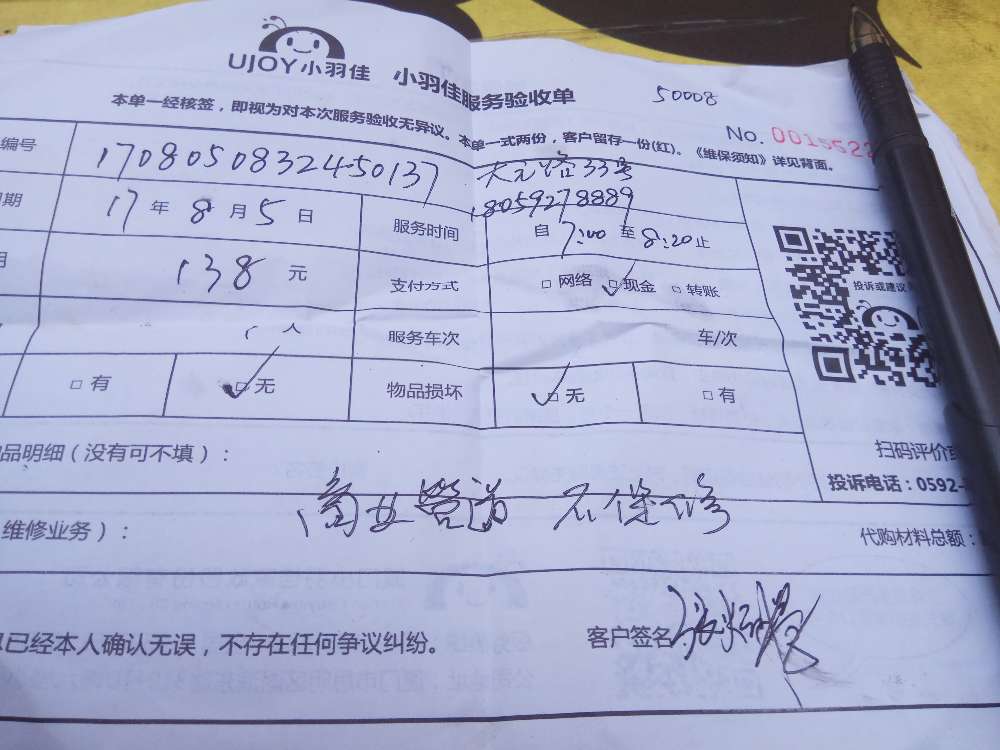 UJOY小羽佳 小羽佳服务验收单
50008
本单一经核签，即视为对本次服务验收无异议。本单一式两份，客户留存一份(红)。《维保须知》详见背面。
No.
编号 1708050832450137
18059278889
期 17年8月5日 服务时间 自7:00至8:20止
138元 支付方式 □网络 □现金 □转账
人 服务车次 车/次
□有 □无 物品损坏 □无 □有
投诉或建议
扫码评价
投诉电话：0592-
品明细（没有可不填）：
商业管道 不保修
维修业务）： 代购材料总额：
已经本人确认无误，不存在任何争议纠纷。 客户签名